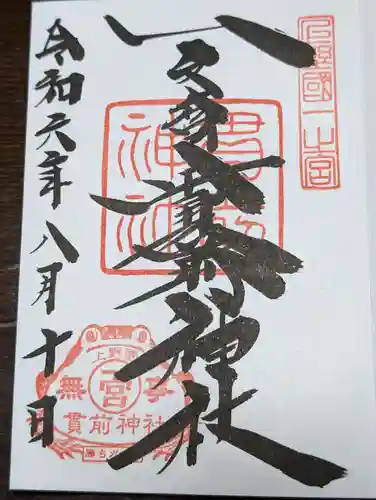 上野國一之宮
一之宮貫前神社
貫前神社
令和六年八月十日
上野國
一宮
無事
貫前神社